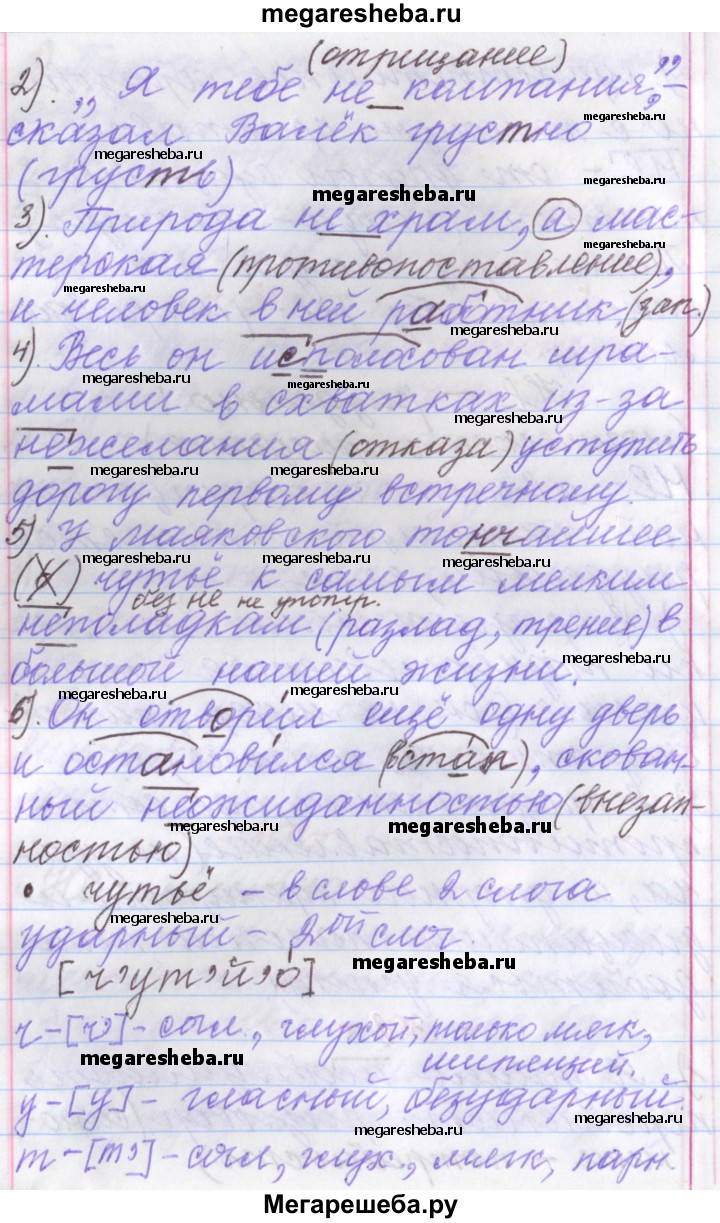 megaresheba.ru
(отрицание)
2). „Я тебе не компания", -
сказал Валёк грустно
megaresheba.ru megaresheba.ru
(грусть) megaresheba.ru
3). Природа не храм, а мас-
megaresheba.ru
терская (противопоставление),
megaresheba.ru
и человек в ней работник. (зап.)
megaresheba.ru
4). Весь он исполосован шра-
megaresheba.ru megaresheba.ru
мами в схватках из-за
нежелания (отказа) уступить
megaresheba.ru megaresheba.ru
дорогу первому встречному.
5) У Маяковского тончайшее
megaresheba.ru megaresheba.ru
чутьё к самым мелким
без не не употр.
неполадкам (разлад, трение) в
большой нашей жизни.
megaresheba.ru
megaresheba.ru
6). Он отворил ещё одну дверь
и остановился (встал), скован-
ный неожиданностью (внезап-
megaresheba.ru megaresheba.ru
ностью)
• чутьё – в слове 2 слога
megaresheba.ru
ударный – 2ой слог.
[ч'ут'й'о] megaresheba.ru
ч – [ч'] – согл., глухой, только мягк,
megaresheba.ru шипящий.
у – [у] – гласный, безударный
megaresheba.ru megaresheba.ru
т – [т'] – согл, глух., мягк, парн.
Мегарешеба.ру